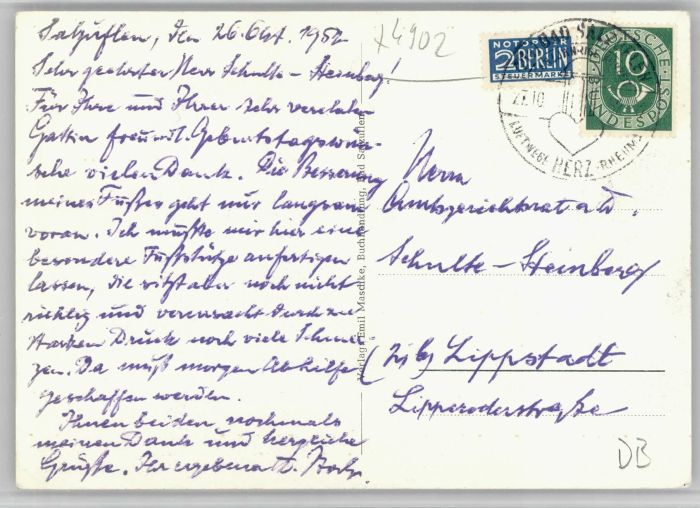 Salzuflen, den 26. Okt. 1952
Sehr geehrter Herr Schulte-Steinberg!
Für Ihre und Ihrer sehr verehrten
Gattin freundl. Geburtstagswün-
sche vielen Dank. Die Besserung
meines Fußes geht nur langsam
voran. Ich mußte mir hier eine
besondere Fußstütze anfertigen
lassen, die sitzt aber noch nicht
richtig und verursacht durch zu
starken Druck noch viele Schmer-
zen. Da muß morgen Abhilfe
geschaffen werden.
Ihnen beiden nochmals
meinen Dank und herzliche
Grüße. Ihr ergebener
Verlag: Emil Masdike, Buchhandlung, Bad Salzuflen
x4902
NOTOPFER
2 BERLIN
STEUERMARKE
BAD SALZUFLEN
27.10
HERZ RHEUMA
LUFTWEGE
10
DEUTSCHE
BUNDESPOST
Herrn
Amtsgerichtsrat a. D.
Schulte-Steinberg
(21b) Lippstadt
Lipperoderstraße
DB